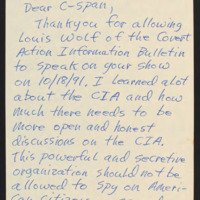 Dear C-span,
Thankyou for allowing
Louis Wolf of the Covert
Action Information Bulletin
to speak on your show
on 10/18/91. I learned alot
about the CIA and how
much there needs to be
more open and honest
discussions on the CIA.
This powerful and secretive
organization should not be
allowed to spy on Ameri-
can citizens